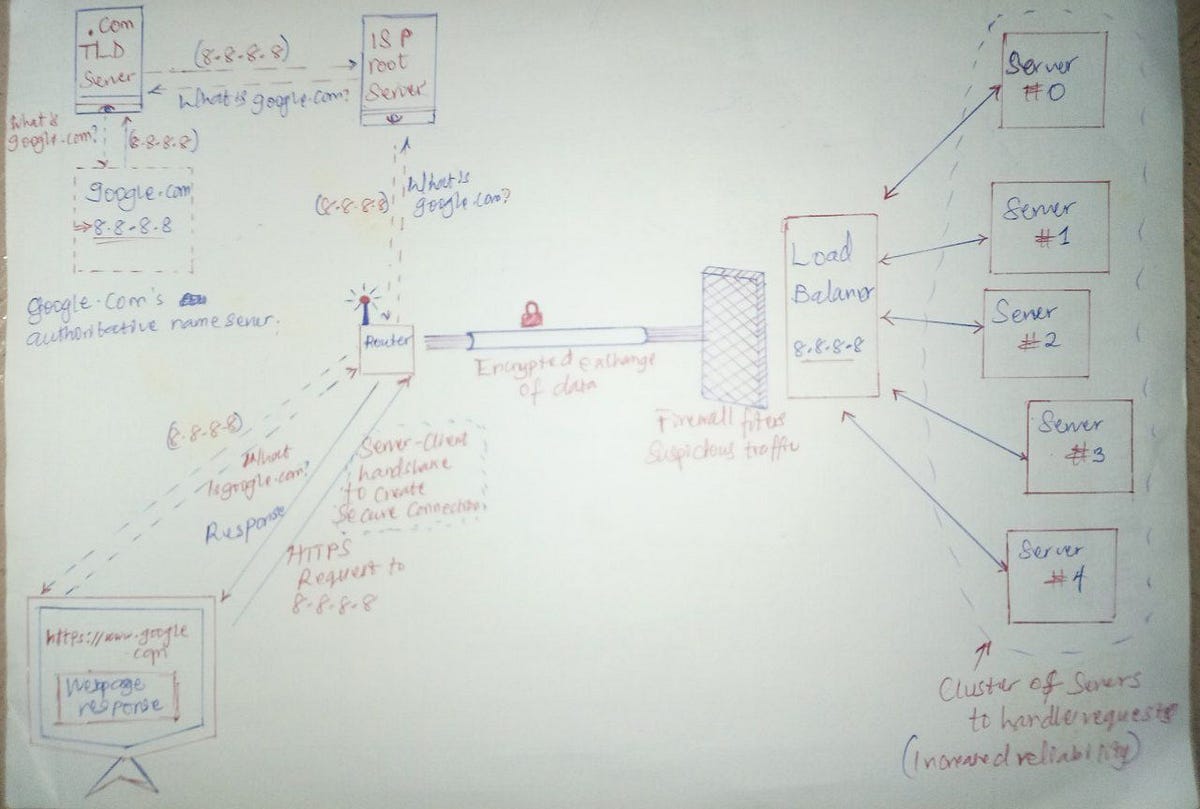 .Com
TLD
Server
(8.8.8.8)
What is google.com?
ISP
root
Server
What is
google.com?
(8.8.8.8)
google.com
8.8.8.8
Google.com's
authoritative name server.
(8.8.8.8)
What is
google.com?
Router
Encrypted exchange
of data
Firewall filters
Suspicious traffic
Load
Balancer
8.8.8.8
Server
#0
Server
#1
Server
#2
Server
#3
Server
#4
Cluster of Servers
to handle requests
(Increased reliability)
(8.8.8.8)
What
Is google.com?
Response
Server-Client
handshake
to Create
Secure Connection
HTTPS
Request to
8.8.8.8
https://www.google
.com
Webpage
response